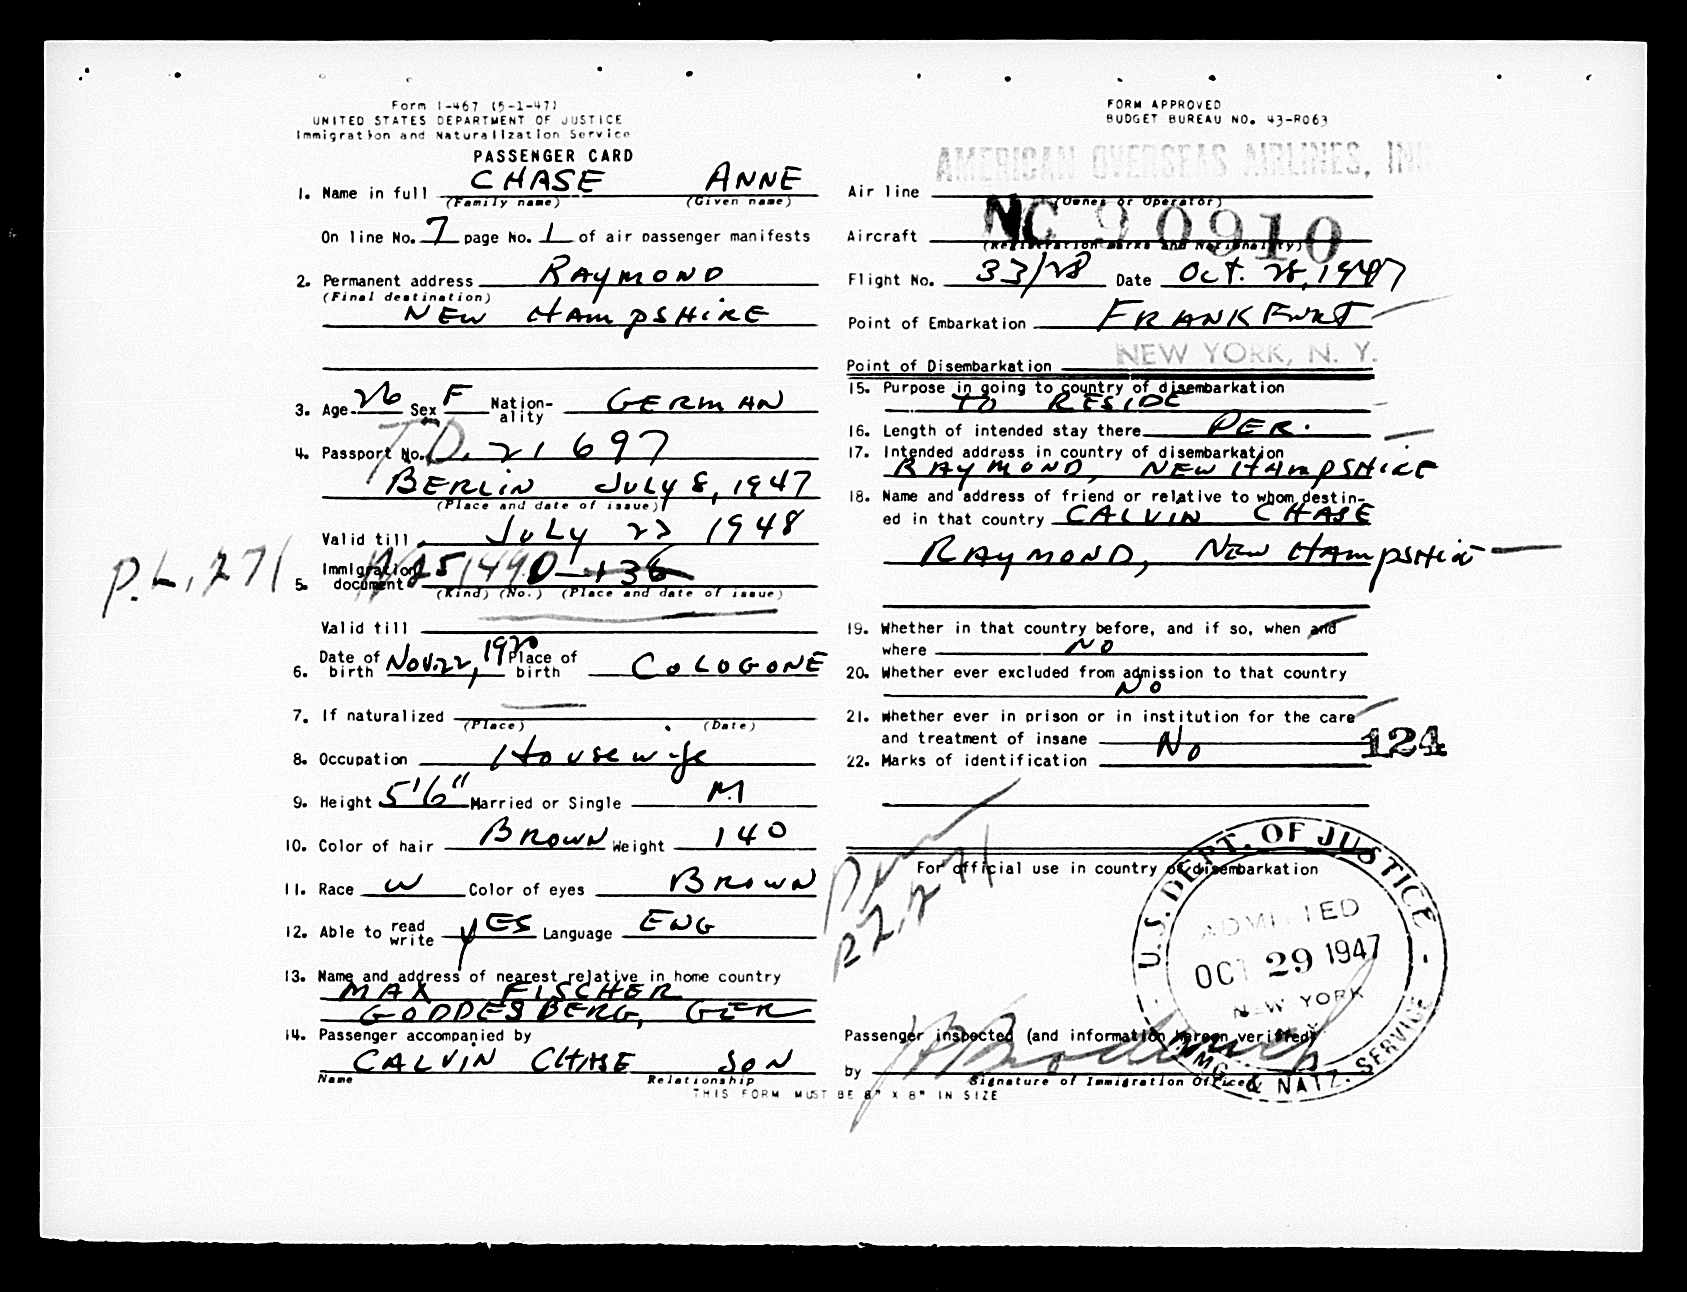 Form I-467 (5-1-47)
UNITED STATES DEPARTMENT OF JUSTICE
Immigration and Naturalization Service
PASSENGER CARD
1. Name in full CHASE ANNE
(Family name) (Given name)
On line No. 7 page No. 1 of air passenger manifests
2. Permanent address RAYMOND
(Final destination)
NEW HAMPSHIRE
3. Age 26 Sex F Nation-ality GERMAN
4. Passport No. T.D. 21697
BERLIN JULY 8, 1947
(Place and date of issue)
Valid till JULY 23 1948
P.L. 271
5. Immigration document
(Kind) (No.) (Place and date of issue)
Valid till
6. Date of birth Nov. 22, 1920 Place of birth COLOGONE
7. If naturalized
(Place) (Date)
8. Occupation Housewife
9. Height 5'6" Married or Single M
10. Color of hair BROWN Weight 140
11. Race W Color of eyes BROWN
12. Able to read write YES Language ENG
13. Name and address of nearest relative in home country
MAX FISCHER
GODDESBERG, GER
14. Passenger accompanied by
CALVIN CHASE SON
Name Relationship
THIS FORM MUST BE 8" X 8" IN SIZE
FORM APPROVED
BUDGET BUREAU NO. 43-R063
AMERICAN OVERSEAS AIRLINES, INC
Air line
(Owner or Operator)
Aircraft NC 90910
(Registration marks and Nationality)
Flight No. 33/28 Date Oct. 28, 1947
Point of Embarkation FRANKFURT
Point of Disembarkation NEW YORK, N. Y.
15. Purpose in going to country of disembarkation
TO RESIDE
16. Length of intended stay there PER.
17. Intended address in country of disembarkation
RAYMOND, NEW HAMPSHIRE
18. Name and address of friend or relative to whom destin-
ed in that country CALVIN CHASE
RAYMOND, NEW HAMPSHIRE
19. Whether in that country before, and if so, when and
where NO
20. Whether ever excluded from admission to that country
NO
21. Whether ever in prison or in institution for the care
and treatment of insane No
124
22. Marks of identification
For official use in country of disembarkation
U.S. DEPT. OF JUSTICE
ADMITTED
OCT 29 1947
NEW YORK
IMMG. & NATZ. SERVICE
Passenger inspected (and information hereon verified)
by
Signature of Immigration Officer